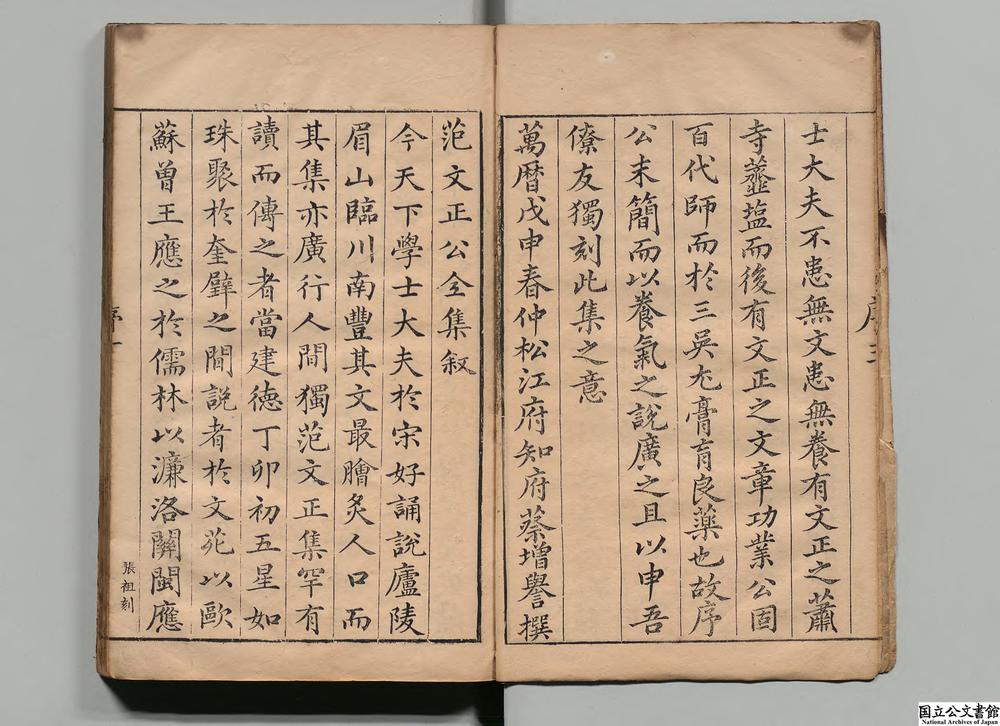 士大夫不患無文患無養有文正之蕭
寺虀塩而後有文正之文章功業公固
百代師而於三吳尤膏肓良藥也故序
公末簡而以養氣之說廣之且以申吾
僚友獨刻此集之意
萬曆戊申春仲松江府知府蔡增譽撰
范文正公全集叙
今天下學士大夫於宋好誦說廬陵
眉山臨川南豐其文最膾炙人口而
其集亦廣行人間獨范文正集罕有
讀而傳之者當建德丁卯初五星如
珠聚於奎璧之間說者於文苑以歐
蘇曾王應之於儒林以濂洛關閩應
張祖刻
国立公文書館
National Archives of Japan